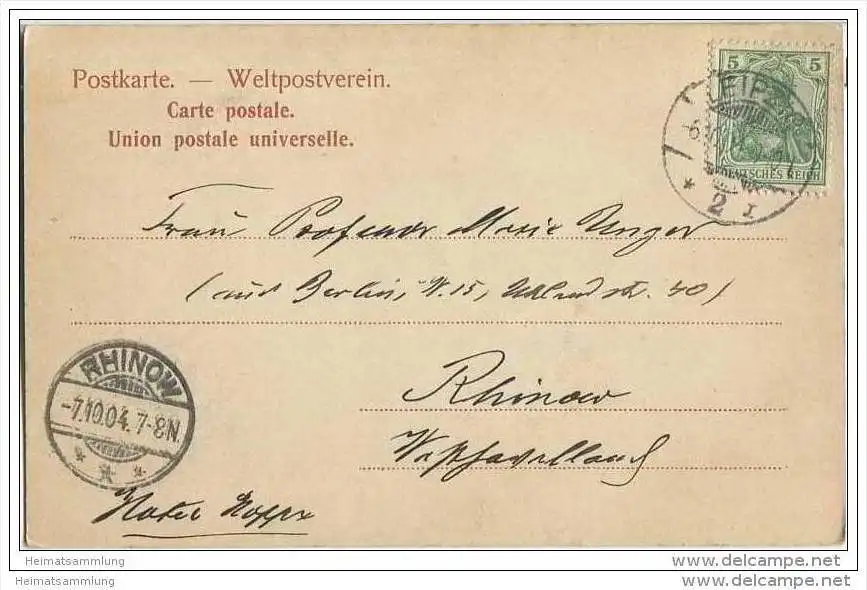 Postkarte. — Weltpostverein.
Carte postale.
Union postale universelle.
5 5
LEIPZIG
DEUTSCHES REICH
* 2 I
Frau Professor Marie Unger
(aus Berlin, W. 15, Uhlandstr. 40)
Rhinow
Westhavelland
RHINOW
-7.10.04. 7-8N.
* * *
Hotel Hoppe
Heimatsammlung
Heimatsammlung
www.delcampe.net
www.delcampe.net